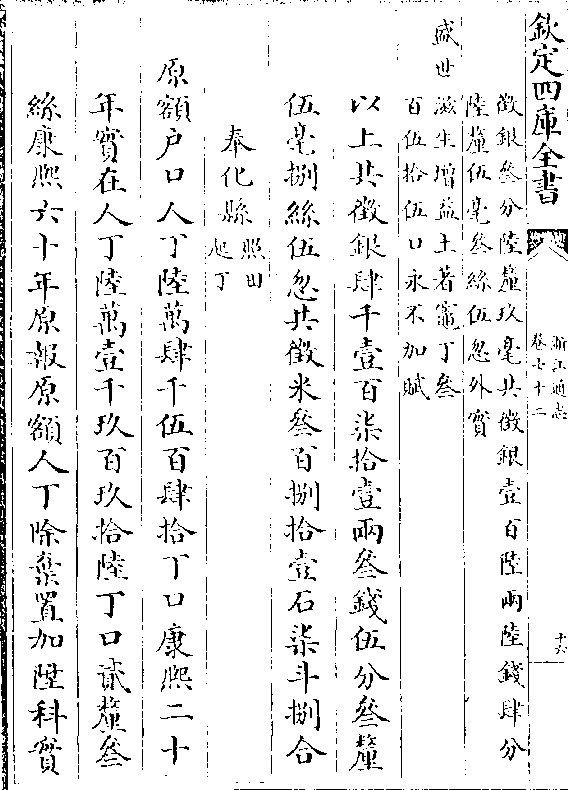 欽定四庫全書
浙江通志
卷七十二
十六
徵銀叄分陸釐玖毫共徵銀壹百陸兩陸錢肆分
陸釐伍毫叄絲伍忽外實
盛世滋生增益土著竈丁叄
百伍拾伍口永不加賦
以上共徵銀肆千壹百柒拾壹兩叄錢伍分叄釐
伍毫捌絲伍忽共徵米叄百捌拾壹石柒斗捌合
奉化縣照田
起丁
原額户口人丁陸萬肆千伍百肆拾丁口康熙二十
年實在人丁陸萬壹千玖百玖拾陸丁口貳釐叄
絲康熙六十年原報原額人丁除棄置加陞科實